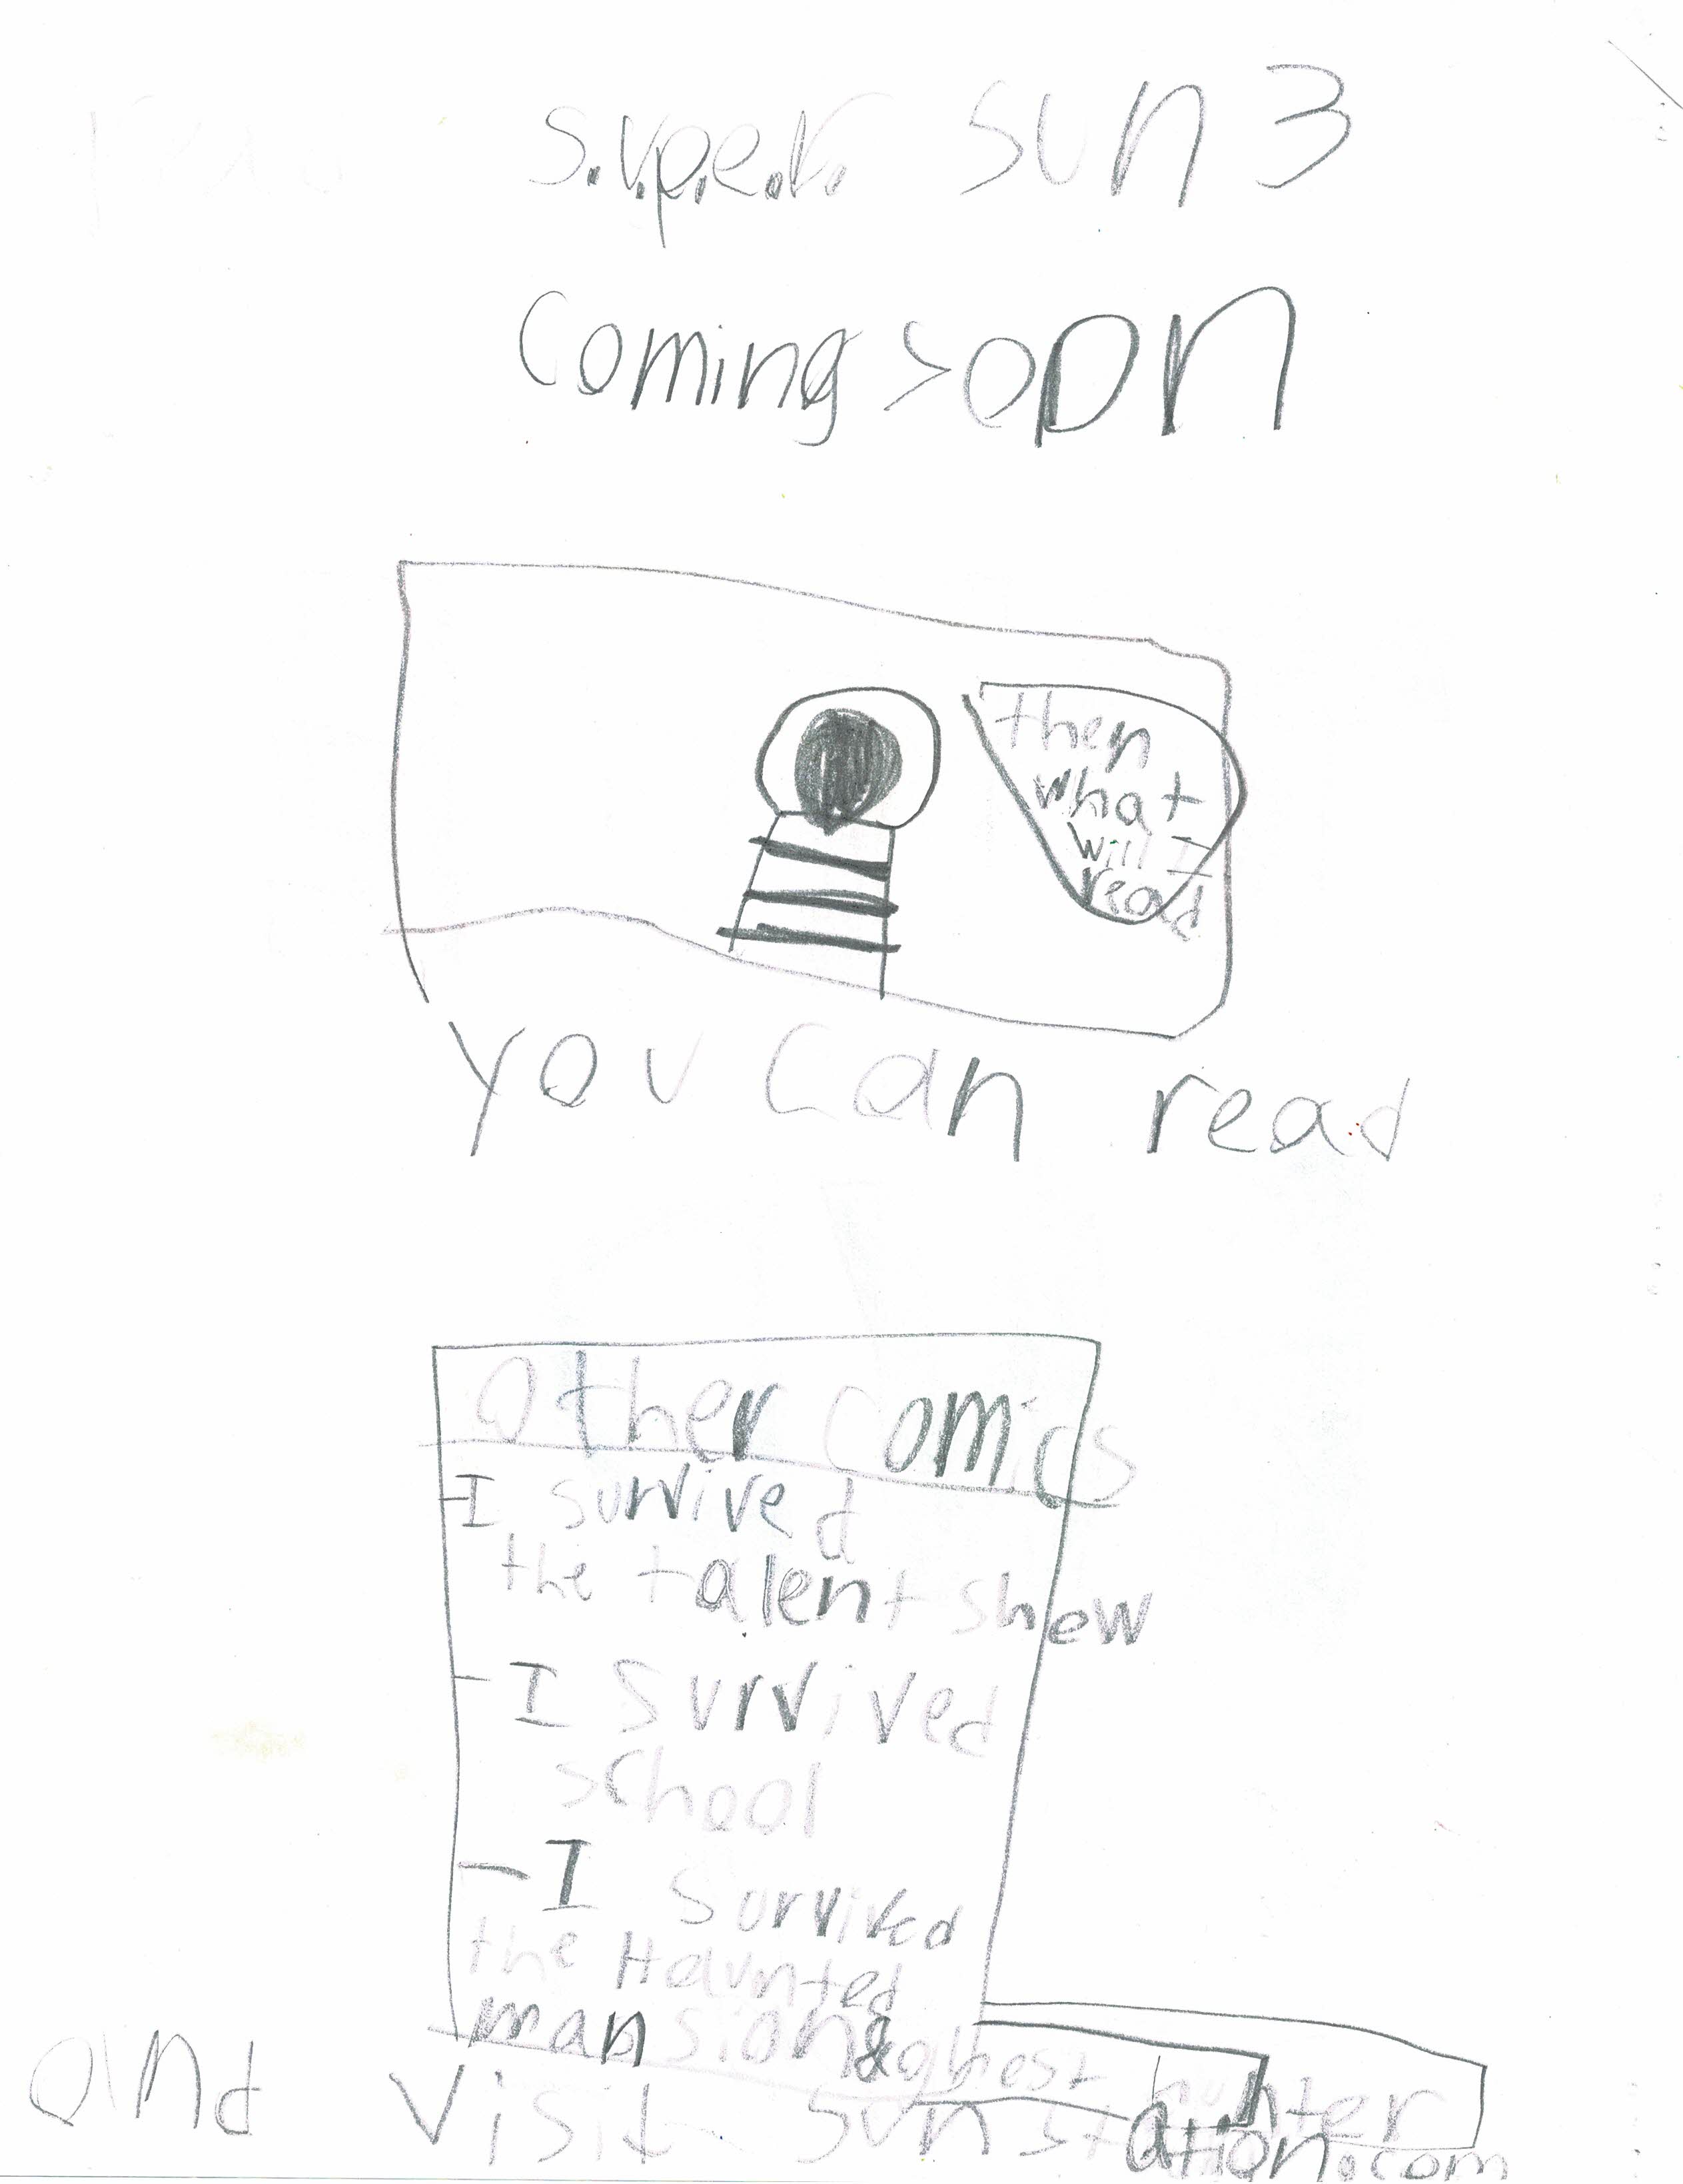 S.u.p.e.r. Sun 3
Coming soon
then
what
will I
read
you can read
Other comics
-I survived
the talent show
-I survived
school
-I survived
the Haunted
mansion & ghost hunter
and visit sunstation.com